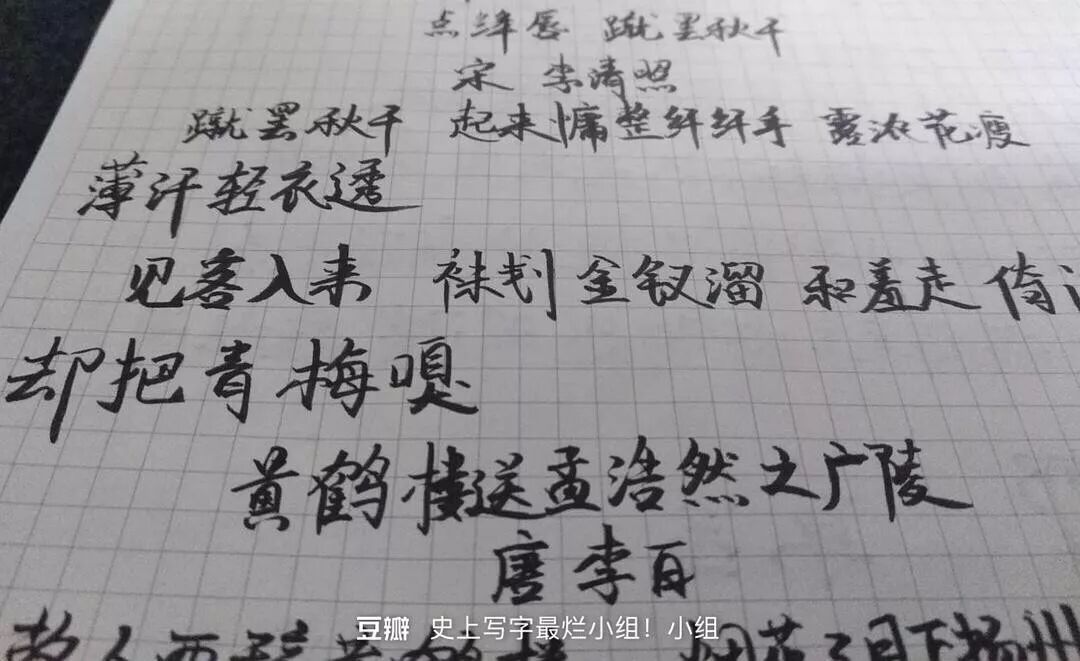 点绛唇 蹴罢秋千
宋 李清照
蹴罢秋千 起来慵整纤纤手 露浓花瘦
薄汗轻衣透
见客入来 袜刬金钗溜 和羞走 倚
却把青梅嗅
黄鹤楼送孟浩然之广陵
唐 李白
故人西辞黄鹤楼 烟花三月下扬州
豆瓣 史上写字最烂小组！小组